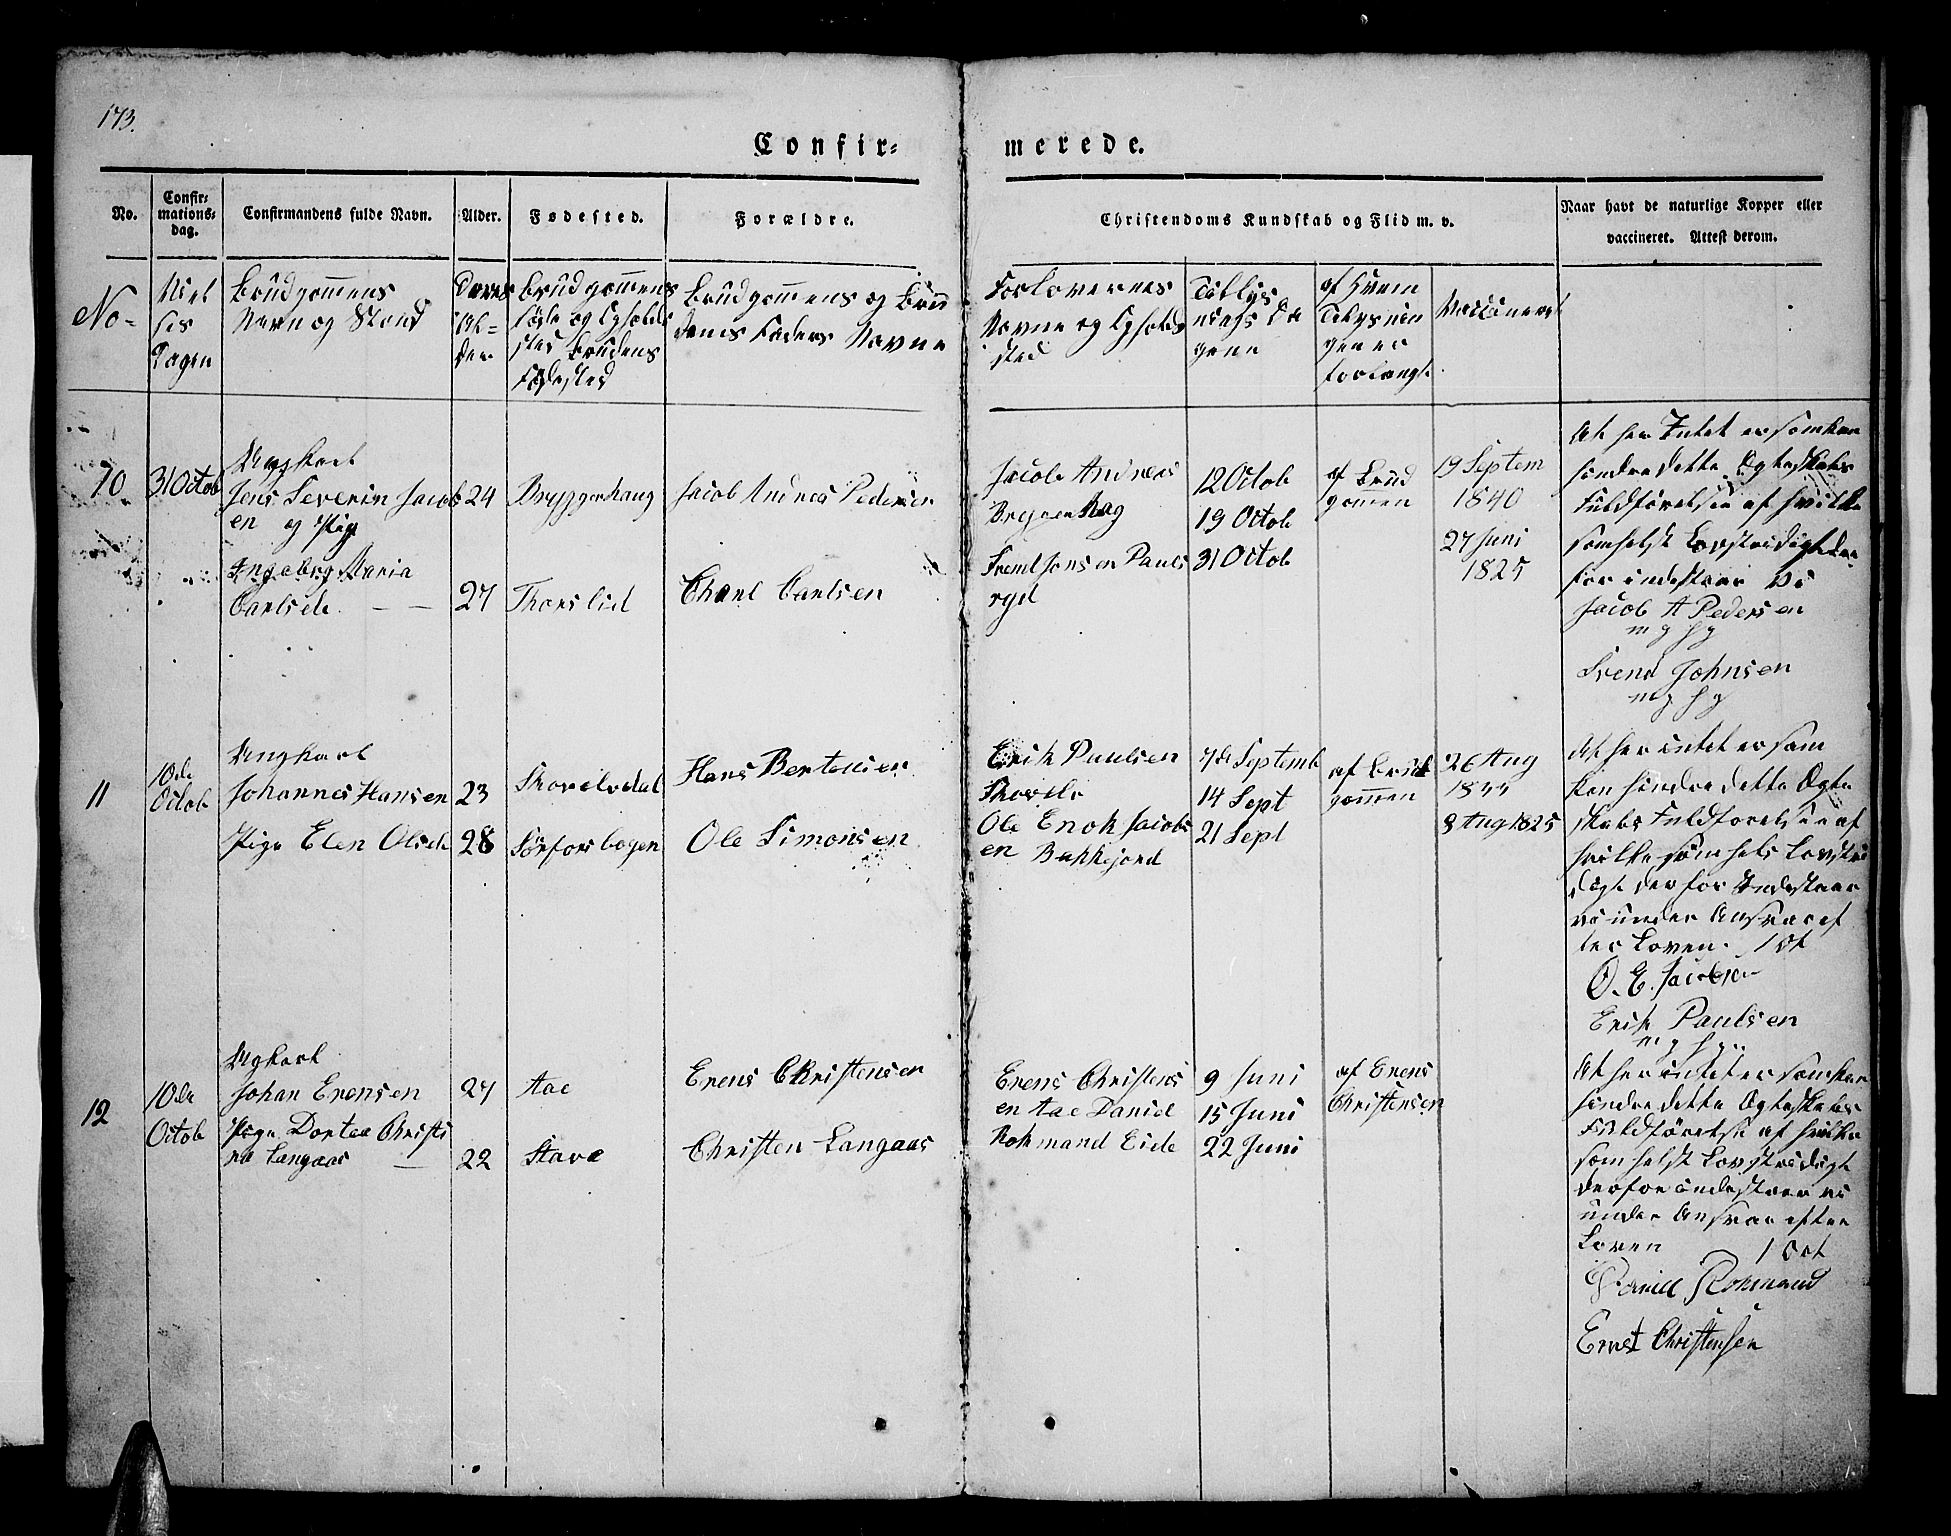 173.
Confir= merede.
No.
Confir=
mations=
dag.
Confirmandens fulde Navn.
Alder.
Fødested.
Forældre.
Christendoms Kundskab og Flid m. v.
Naar havt de naturlige Kopper eller
vaccineret. Attest derom.
No-
Viel
ses
Dagen
Brudgommens
Navn og Stand
Deres
Al=
der
Brudgommens
føde og Opholds
sted Brudens
Fødested
Brudgommens og Bru
dens Faders Navne
Forlovernes
Navne og Ophold
sted
Tillys
nings Da
gene
af hvem
Lysnin
gen er
forlangt.
Vaccineret
10
31 Octob
Ungkarl
Jens Severin Jacobs
en og Pige
Ingebrg Maria
Carlsdr. — —
24
27
Bryggerhaug
Thorslid
Jacob Andreas Pedersen
Charl Carlsen
Jacob Andreas
Svend Jonsen Pauls
ryd
12 Octob
19 Octob
31 Octob
af Brud
gommen
19 Septem
1840
27 Juni
1825
At her Intet er som kan
hindre dette Ægteskabs
Fuldførelse af hvilke
somhelst Lovstridigheder
for indestaar vi
Jacob A Pedersen
m f g
Svend Johnsen
m f g
11
10de
Octob
Ungkarl
Johannes Hansen
Pige Elen Olsdr
23
28
Skovelvdal
Sørforsbogen
Hans Bertensen
Ole Simonsen
Erik Paulsen
Ole Enok Jacobs
en Bakkejord
7de Septemb
14 Sept
21 Sept
af Brud
gommen
26 Aug
8 Aug 1825
At her intet er som
kan hindre dette Ægte
skabs Fuldførelse af
hvilke som helst Lovstri
digt derfor Indestaar
vi under Ansvar ef
ter Loven. 1 Oct
O. E. Jacobsen
Erik Paulsen
m f g
12
10de
Octob
Ugkarl
Johan Erensen
Pige Dortea Christi
na Langaas —
27
22
Aae
Stave
Erens Christensen
Christen Langaas
Erens Christens
en Aae Daniel
Rokmand Eide
9 Juni
15 Juni
22 Juni
af Erens
Christensen
At her intet er som kan
hindre dette Ægteskabs
Fuldførelse af hvilke
som helst Lovstridigt
derfor indestaar vi
under Ansvar efter
Loven 1 Oct
Daniel Rokmand
Ernst Christensen